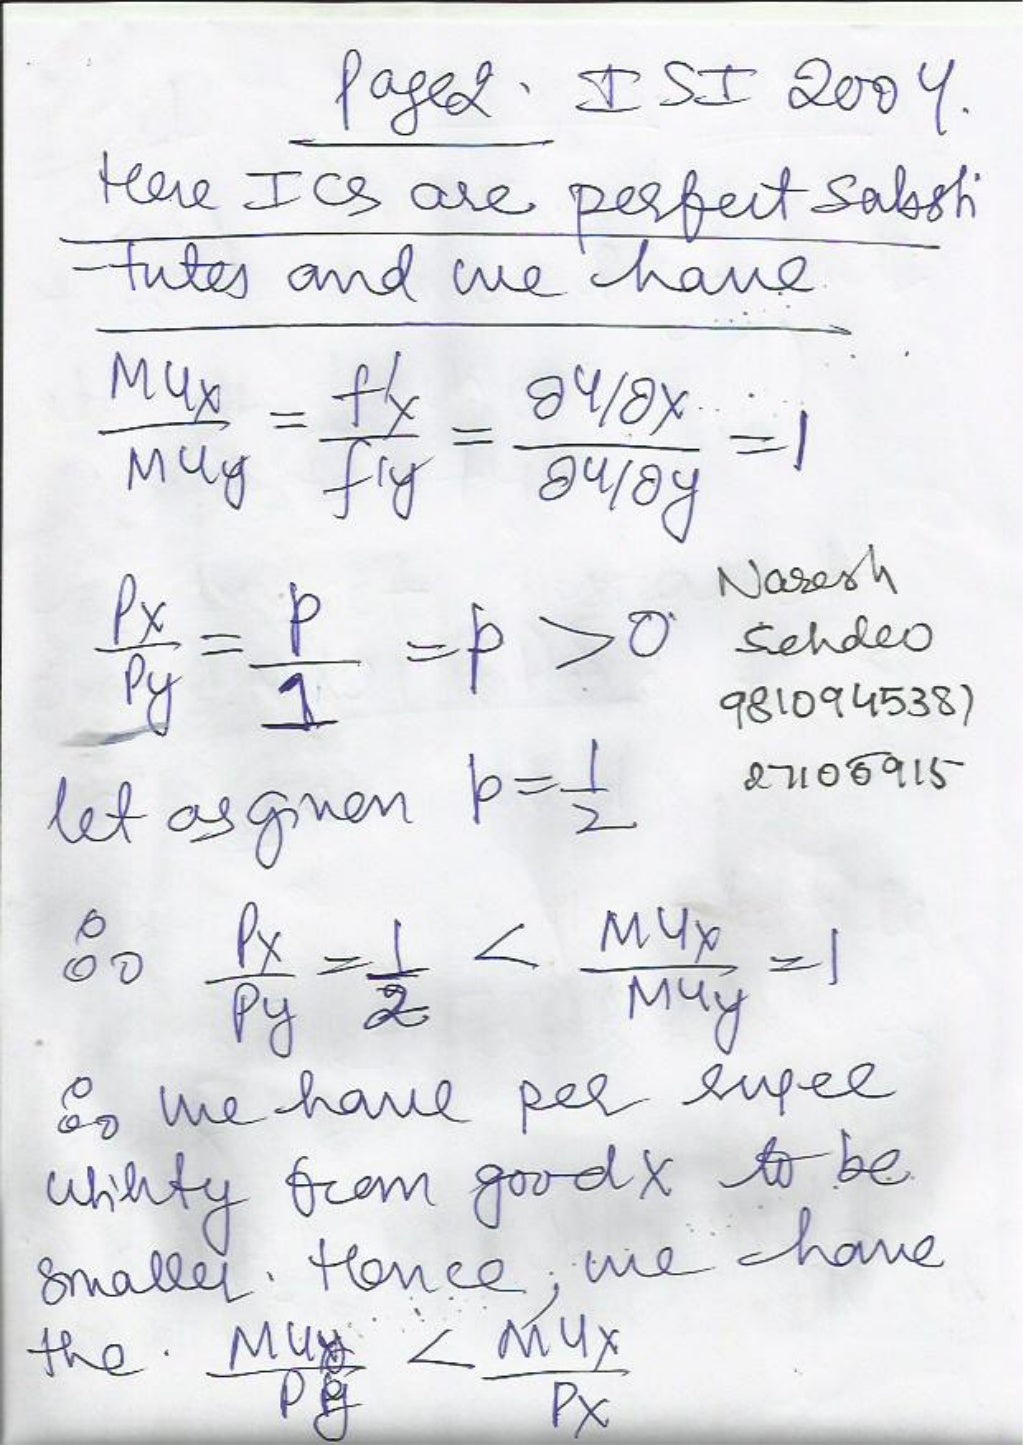 Page 2. ISI 2004.
Here ICs are perfect Substi
-tutes and we have
MUx / MUy = f'x / f'y = ∂U/∂x / ∂U/∂y = 1
Px / Py = p / 1 = p > 0
Naresh
Sehdev
9810945381
27106915
let as given p = 1/2
∴ Px / Py = 1/2 < MUx / MUy = 1
∴ we have per rupee
utility from good x to be
smaller. Hence, we have
the. MUy / Py < MUx / Px